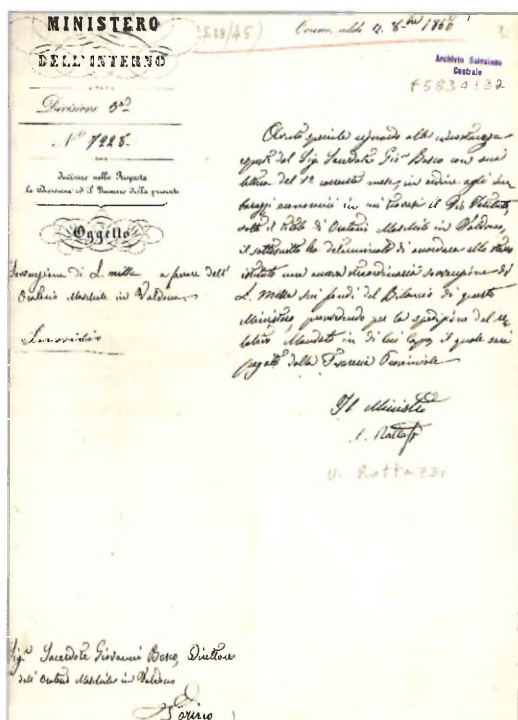 MINISTERO
DELL'INTERNO
Divisione 5ª
N° 7228.
Indicare nella Risposta
la Divisione ed il Numero della presente
Oggetto
Sovvenzione di L. mille a favore dell'
Oratorio Maschile in Valdocco
(538/45)
Torino addì
Archivio Salesiano
Centrale
Avuto speciale riguardo alle circostanze
esposte dal Sig. Sacerdote Gio. Bosco con sua
lettera del corrente mese, in ordine agli im
barazzi economici in cui trovasi il Pio Istituto
sotto il titolo di Oratorio Maschile in Valdocco,
il sottoscritto ha determinato di accordare allo stesso
istituto una nuova straordinaria sovvenzione di
L. Mille sui fondi del Bilancio di questo
Ministero, provvedendo per la spedizione del re
lativo Mandato in di Lei capo, il quale sarà
pagato dalla Tesoreria Provinciale
Il Ministro
U. Rattazzi
U. Rattazzi
Sig. Sacerdote Giovanni Bosco, Direttore
dell'Oratorio Maschile in Valdocco
Torino